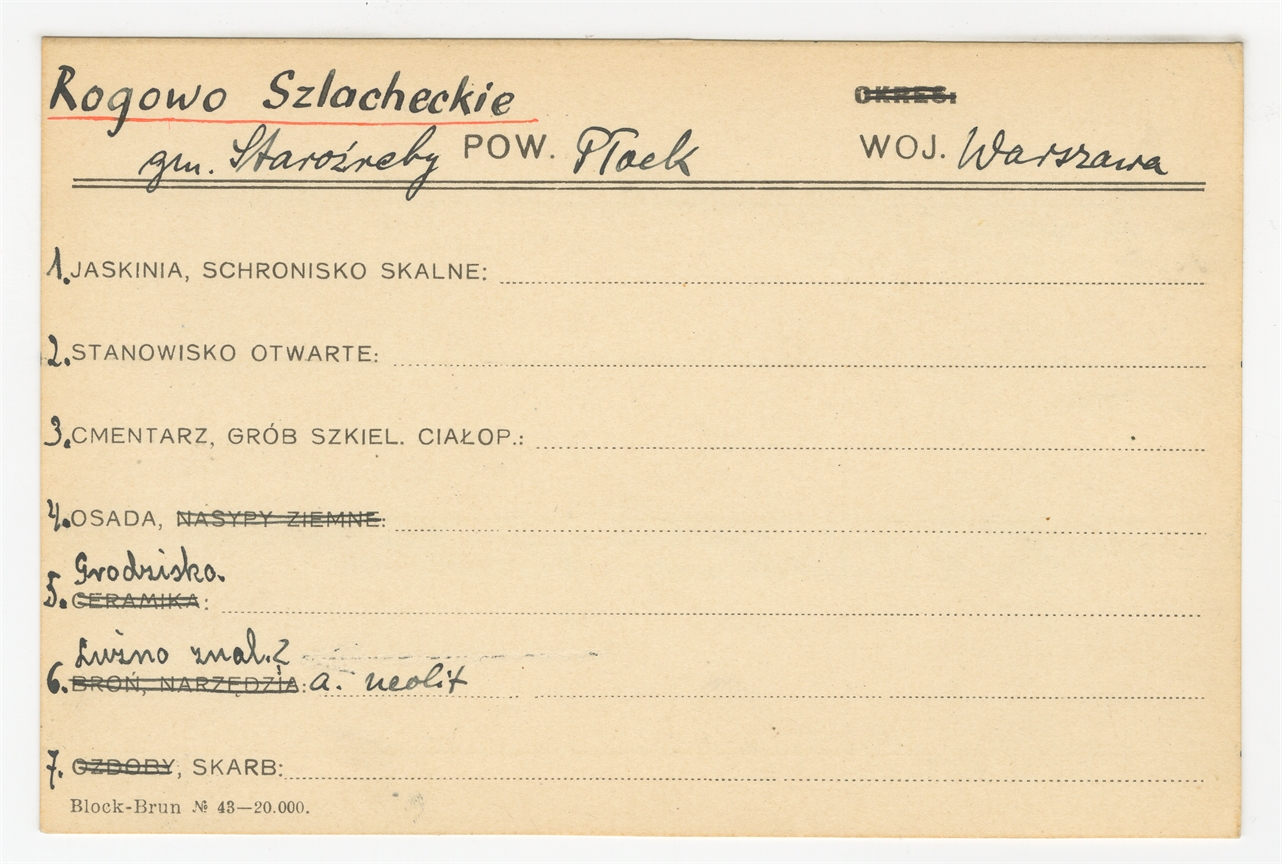 Rogowo Szlacheckie OKRES:
gm. Staroźreby POW. Płock WOJ. Warszawa
1. JASKINIA, SCHRONISKO SKALNE:
2. STANOWISKO OTWARTE:
3. CMENTARZ, GRÓB SZKIEL. CIAŁOP.:
4. OSADA, NASYPY ZIEMNE:
Grodzisko.
5. CERAMIKA:
Luźno znal.
6. BROŃ, NARZĘDZIA: a. neolit
7. OZDOBY, SKARB:
Block-Brun № 43—20.000.